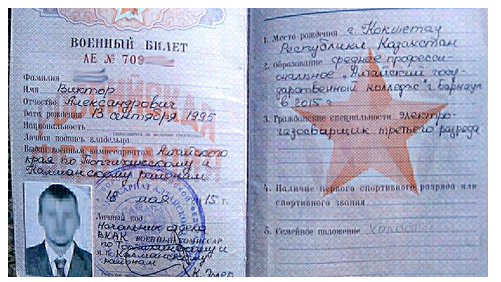 ВОЕННЫЙ БИЛЕТ
АЕ № 709
Фамилия
Имя Виктор
Отчество Александрович
Дата рождения 13 сентября 1995
Национальность
Личная подпись владельца
Выдан военным комиссариатом Алтайского
края по Топчихинскому и
Калманскому районам
18 мая 15 г.
Личный код
Начальник отдела
ВКАК ВОЕННЫЙ КОМИССАР
по Топчихинскому и
Калманскому
районам
1. Место рождения г. Кокшетау
Республики Казахстан
2. Образование среднее професси-
ональное "Алтайский госу-
дарственный колледж" г. Барнаул
в 2015 г
3. Гражданские специальности электро-
газосварщик третьего разряда
4. Наличие первого спортивного разряда или
спортивного звания
5. Семейное положение Холост